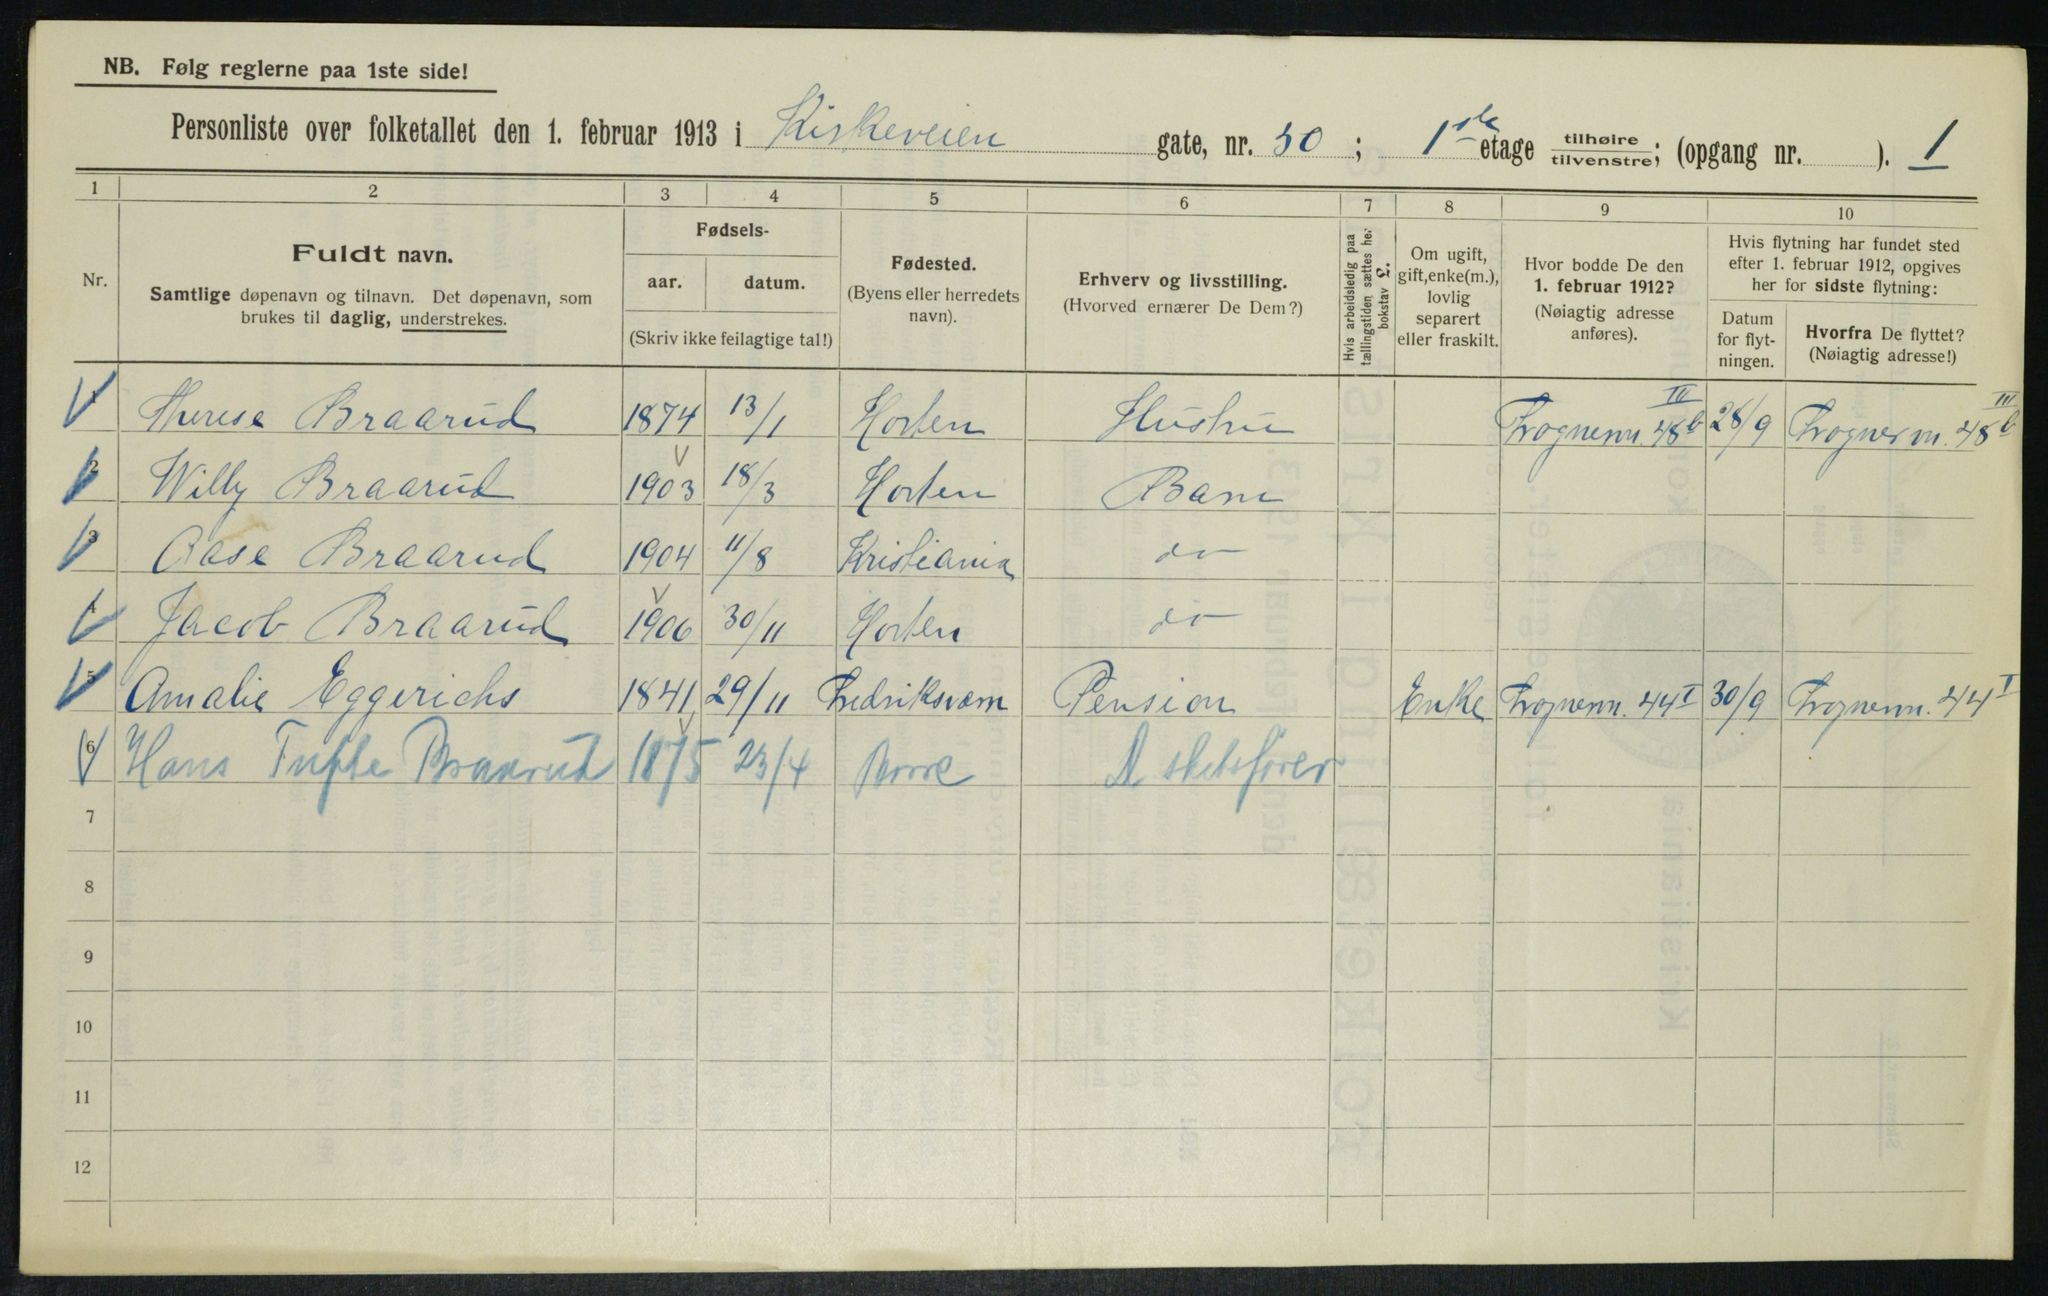 NB. Følg reglerne paa 1ste side!
Personliste over folketallet den 1. februar 1913 i Kirkeveien gate, nr. 50; 1ste etage tilhøire/tilvenstre; (opgang nr. ). 1
1 2 3 4 5 6 7 8 9 10
Nr.
Fuldt navn.
Samtlige døpenavn og tilnavn. Det døpenavn, som
brukes til daglig, understrekes.
Fødsels-
aar. datum.
(Skriv ikke feilagtige tal!)
Fødested.
(Byens eller herredets
navn).
Erhverv og livsstilling.
(Hvorved ernærer De Dem?)
Hvis arbeidsledig paa
tællingstiden sættes her
bokstav L.
Om ugift,
gift, enke(m.),
lovlig
separert
eller fraskilt.
Hvor bodde De den
1. februar 1912?
(Nøiagtig adresse
anføres).
Hvis flytning har fundet sted
efter 1. februar 1912, opgives
her for sidste flytning:
Datum
for flyt-
ningen.
Hvorfra De flyttet?
(Nøiagtig adresse!)
1 Therese Braarud 1874 13/1 Horten Hustru Frognerm. 48b III 28/9 Frognerm. 48b III
2 Willy Braarud 1903 18/3 Horten Barn
3 Aase Braarud 1904 11/8 Kristiania do
4 Jacob Braarud 1906 30/11 Horten do
5 Amalie Eggerichs 1841 29/11 Fredriksværn Pension Enke Frognerm. 44 I 30/9 Frognerm. 44 I
6 Hans Tufte Braarud 1875 23/4 Borre
7
8
9
10
11
12